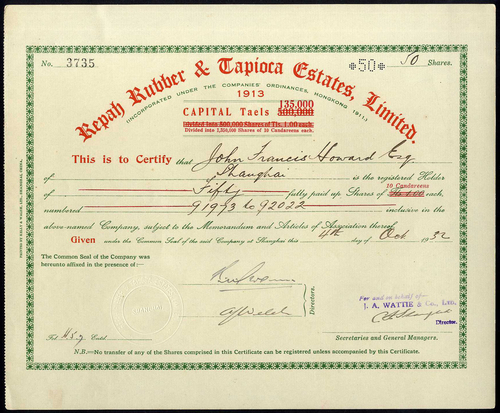 No. 3735
*50*
50 Shares.
Repah Rubber & Tapioca Estates, Limited.
(INCORPORATED UNDER THE COMPANIES' ORDINANCES, HONGKONG 1911)
1913
135,000
CAPITAL Taels 500,000
Divided into 500,000 Shares of Tls. 1.00 each.
Divided into 1,350,000 Shares of 10 Candareens each.
This is to Certify that John Francis Howard Esq.
of Shanghai is the registered Holder
10 Candareens
of Fifty fully paid up Shares of Tls. 1.00 each,
numbered 91973 to 92022 inclusive in the
above-named Company, subject to the Memorandum and Articles of Association thereof.
Given under the Common Seal of the said Company at Shanghai this 4th day of Oct 1932
The Common Seal of the Company was
hereunto affixed in the presence of:—
Directors.
For and on behalf of
J. A. WATTIE & Co., LTD.
Director.
Secretaries and General Managers.
N.B.—No transfer of any of the Shares comprised in this Certificate can be registered unless accompanied by this Certificate.